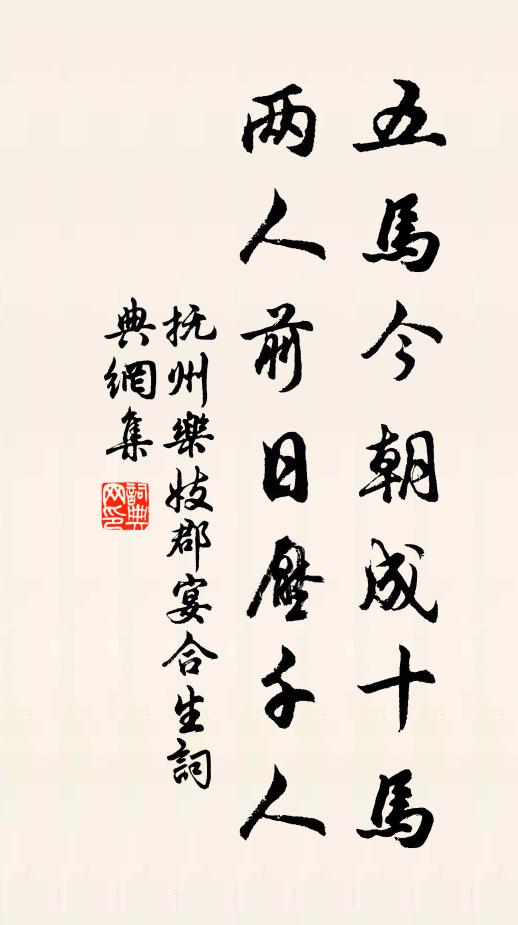 五馬今朝成十馬
两人前日壓千人
抚州樂妓郡宴合生詞
典網集
詞典
网印